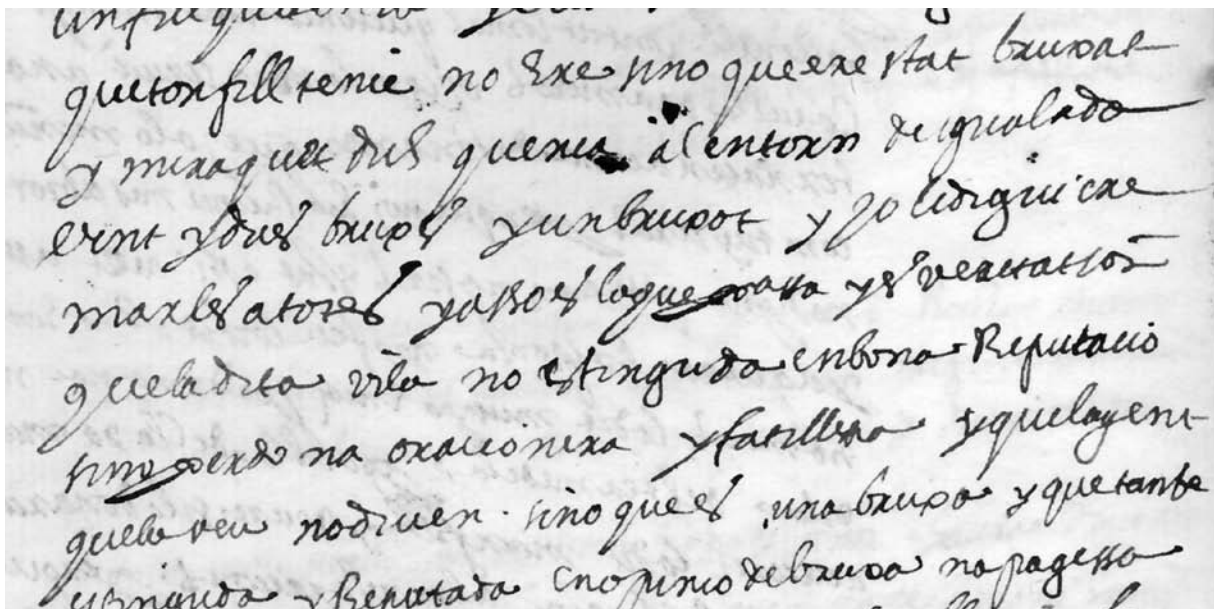 que ton fill tenie no ere sino que ere stat bruxat
y mira que et dich que n ia al entorn de igualada
vint y dues bruxes y un bruxot y jo li digui cre
mar les a totes y asso es lo que passa y es veritat
que la dita vila no es tinguda en bona Reputacio
sino per dona oracionera y fatillera y que la gent
que la veu no diuen sino que es una bruxa y que tanbe
es tinguda y Reputada en opinio de bruxa na pagessa